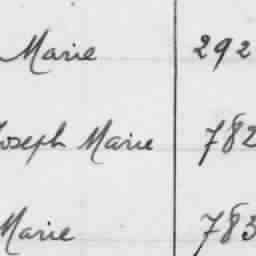 Marie 292
Joseph Marie 782
Marie 783